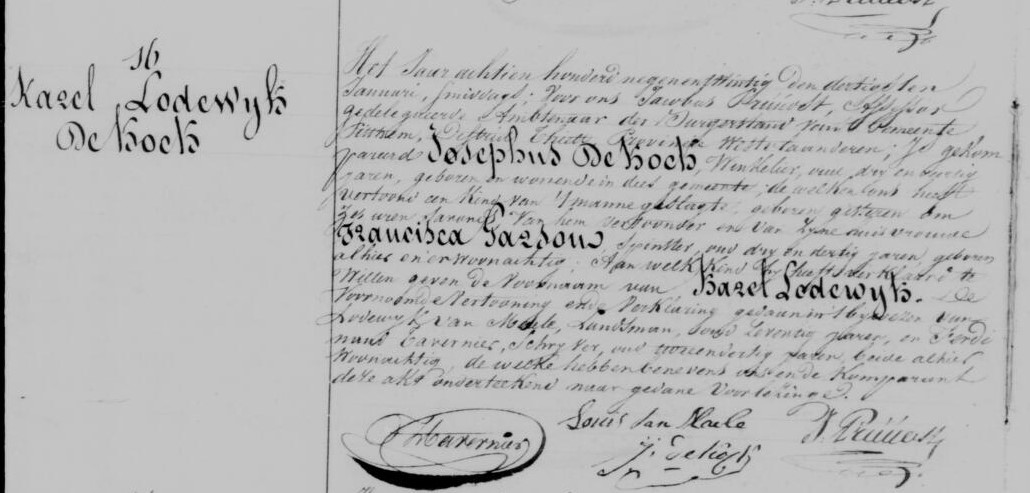 16
Karel Lodewyk
De Kock
Het Jaar achtien honderd negenentwintig den dertigsten
Januari, smiddags; Voor ons Jacobus Prúúost, Assessor
gedelegueerde Ambtenaar der Burgerstand van t Gemeente
Pitthem, District Thielt Provincie Westvlaanderen; Is gekom
pareerd Josephus De Kock, Winkelier, oud dry en
jaren, geboren en wonende in dees gemeente, de welken ons heeft
vertoond een kind van 't manne geslagte, geboren gisteren om
zes uren savonds Van hem Vertoonder en Van Zyne huisvrouwe
Francisca Pardou, Spinster, oud dry en dertig jaren, geboren
alhier en er woonachtig; Aan welk Kind hy heeft verklaard te
Willen geven de Voornaam van Karel Lodewyk. De
Voornoemde Vertooning ende Verklaring gedaan in 't bywezen van
Lodewyk Van Maele, Landsman, oud zeventig jaren, en Ferdi
nand Tavernier, Schryver, oud tweendertig jaren, beide alhier
Woonachtig, de welke hebben benevens ons ende Komparant
deze akt onderteekend naar gedane Voorlezinge.
Louis Van Maele
F Tavernier
J. De Kock
J. Prúúost